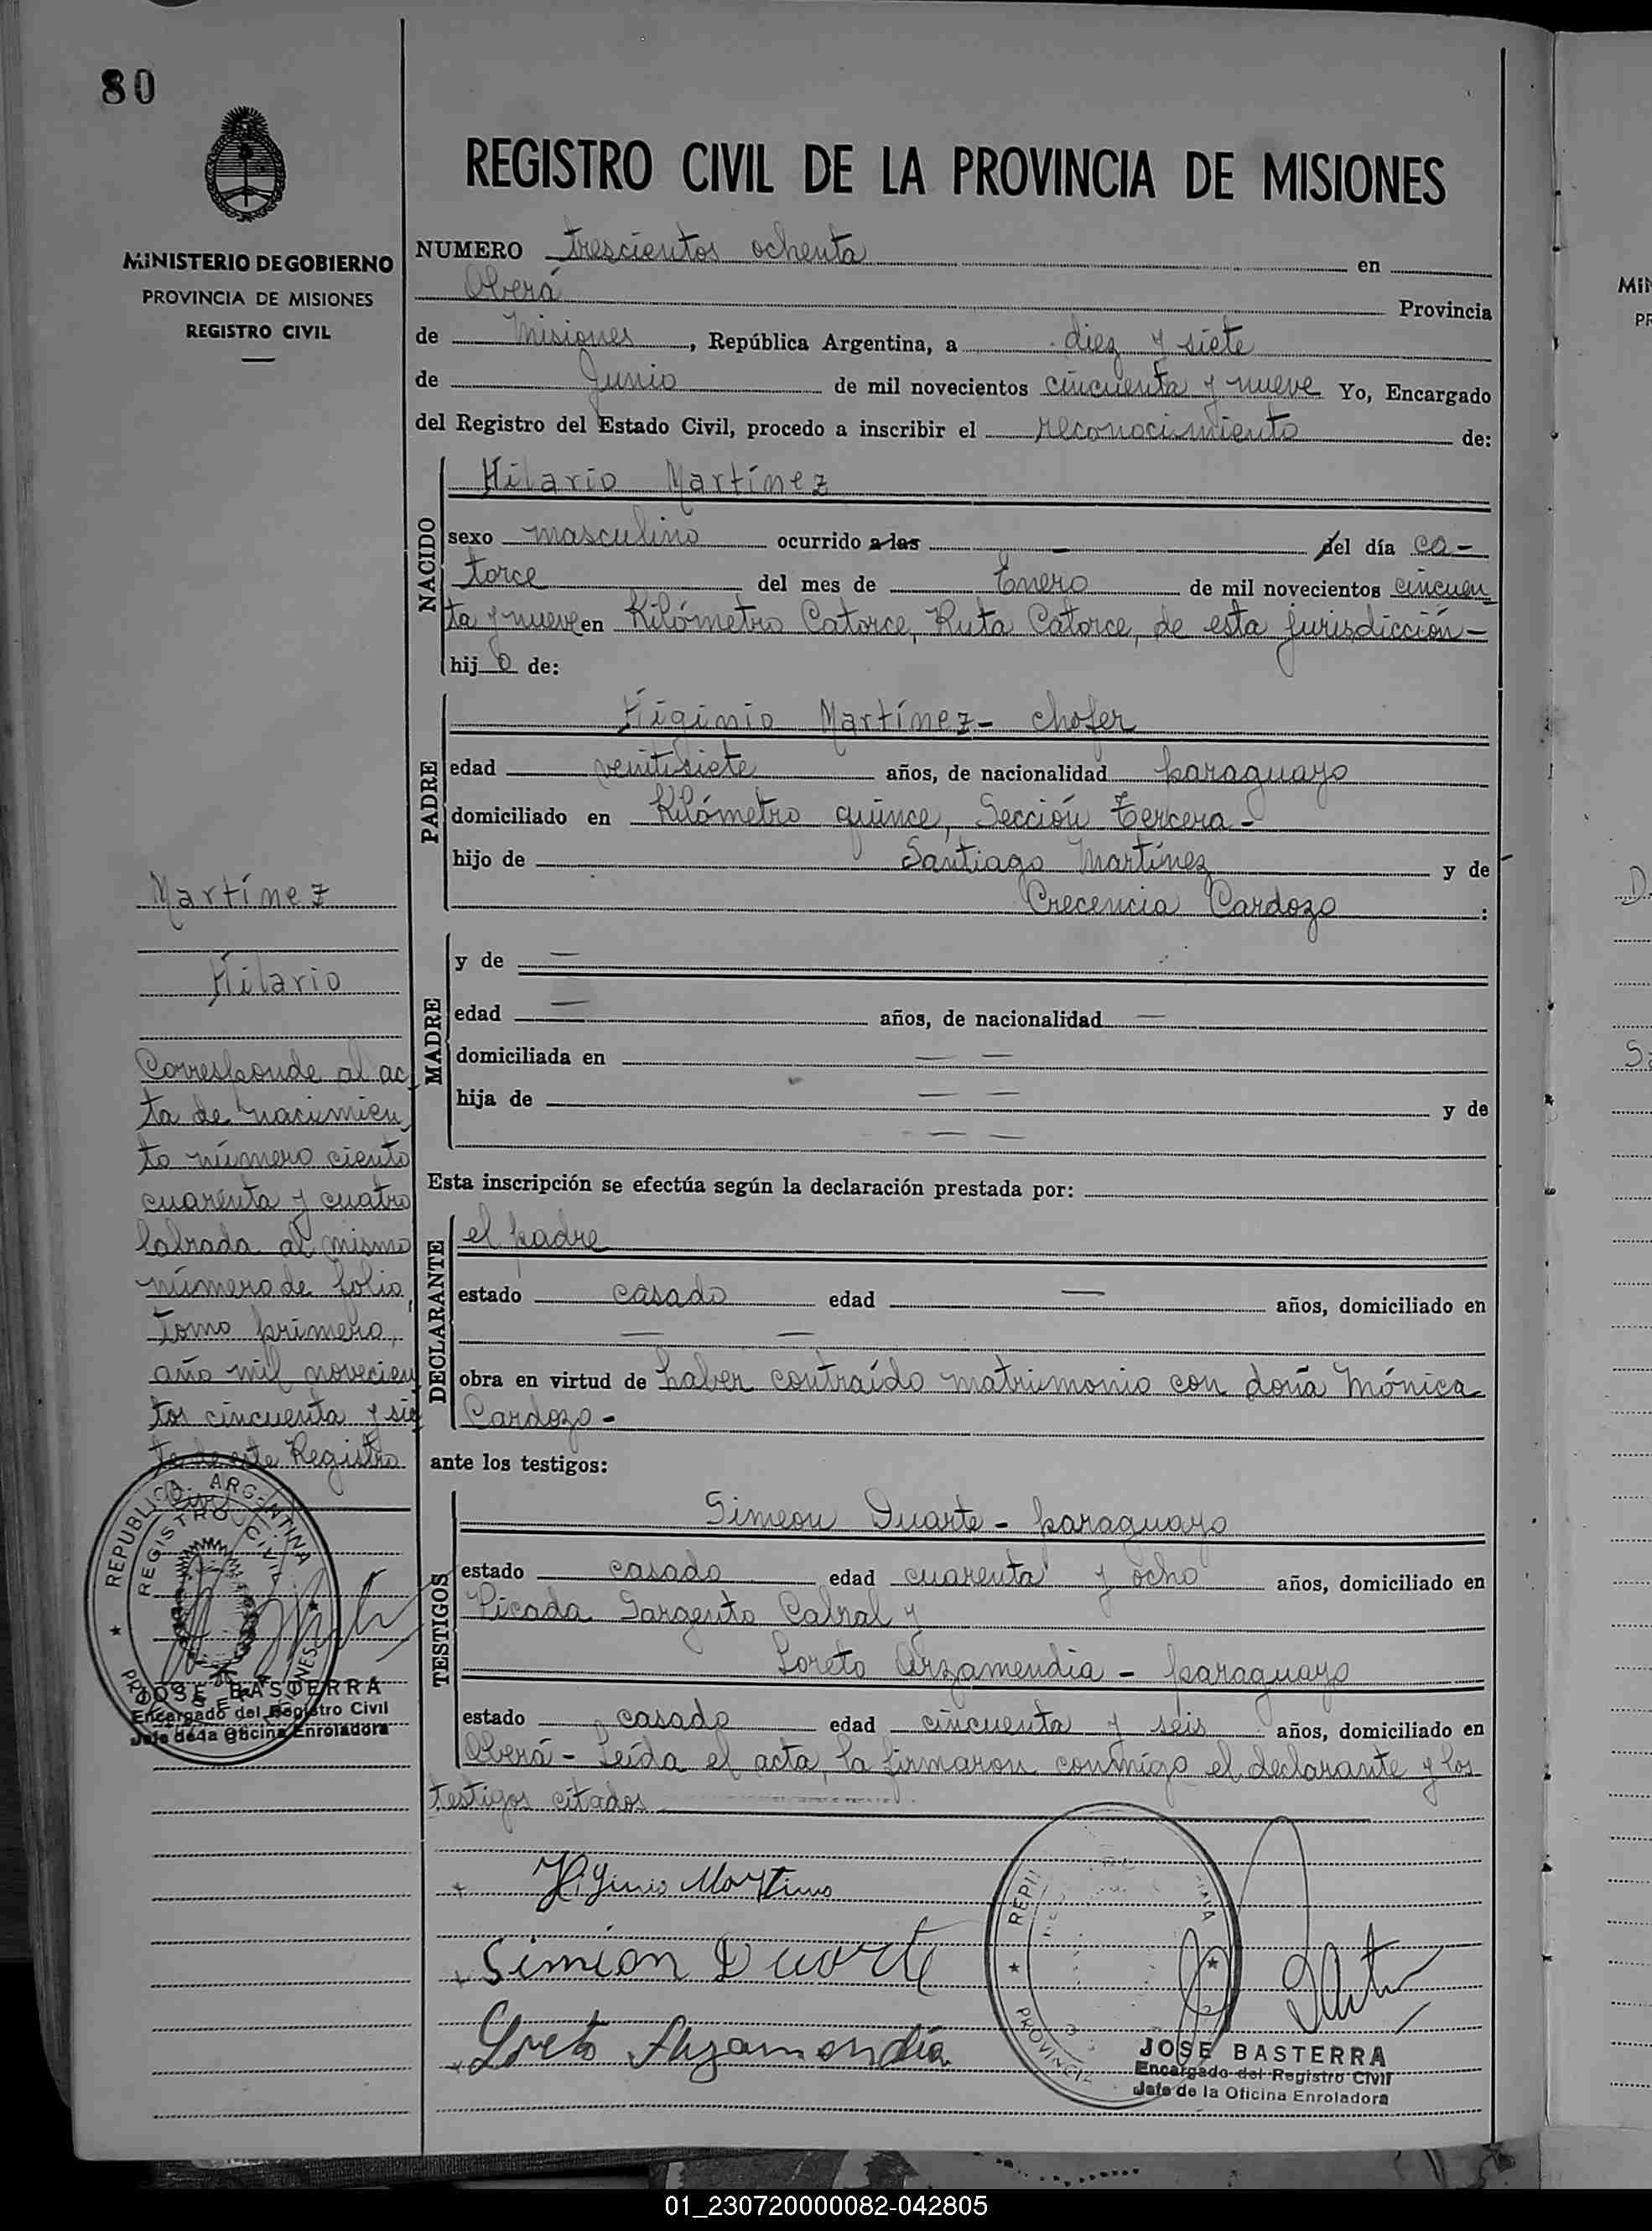 80
REGISTRO CIVIL DE LA PROVINCIA DE MISIONES
MINISTERIO DE GOBIERNO
PROVINCIA DE MISIONES
REGISTRO CIVIL
NUMERO trescientos ochenta en
Oberá Provincia
de Misiones, República Argentina, a diez y siete
de Junio de mil novecientos cincuenta y nueve Yo, Encargado
del Registro del Estado Civil, procedo a inscribir el reconocimiento de:
NACIDO
Hilario Martínez
sexo masculino ocurrido a las — del día ca-
torce del mes de Enero de mil novecientos cincuen
ta y nueve en Kilómetro Catorce, Ruta Catorce, de esta jurisdicción-
hijo de:
PADRE
Higinio Martínez- chofer
edad venitisiete años, de nacionalidad paraguayo
domiciliado en Kilómetro quince, Sección Tercera-
hijo de Santiago Martínez y de
Crecencia Cardozo :
MADRE
y de —
edad — años, de nacionalidad —
domiciliada en — —
hija de — — y de
— —
Esta inscripción se efectúa según la declaración prestada por:
DECLARANTE
el padre
estado casado edad — años, domiciliado en
— —
obra en virtud de haber contraído matrimonio con doña Mónica
Cardozo-
ante los testigos:
TESTIGOS
Simeon Duarte - paraguayo
estado casado edad cuarenta y ocho años, domiciliado en
Picada Sargento Cabral y
Loreto Arzamendia - paraguayo
estado casado edad cincuenta y seis años, domiciliado en
Oberá - Leída el acta, la firmaron conmigo el declarante y los
testigos citados
Martínez
Hilario
Corresponde al ac
ta de nacimien
to número ciento
cuarenta y cuatro
labrada al mismo
número de folio,
Tomo primero,
año mil novecien
tos cincuenta y sie
te de este Registro
Civil
REPUBLICA ARGENTINA
REGISTRO CIVIL
JOSE BASTERRA
Encargado del Registro Civil
Jefe de la Oficina Enroladora
Higinio Martines
Simion Duarte
Loreto Arzamendia
JOSE BASTERRA
Encargado del Registro Civil
Jefe de la Oficina Enroladora
01_230720000082-042805